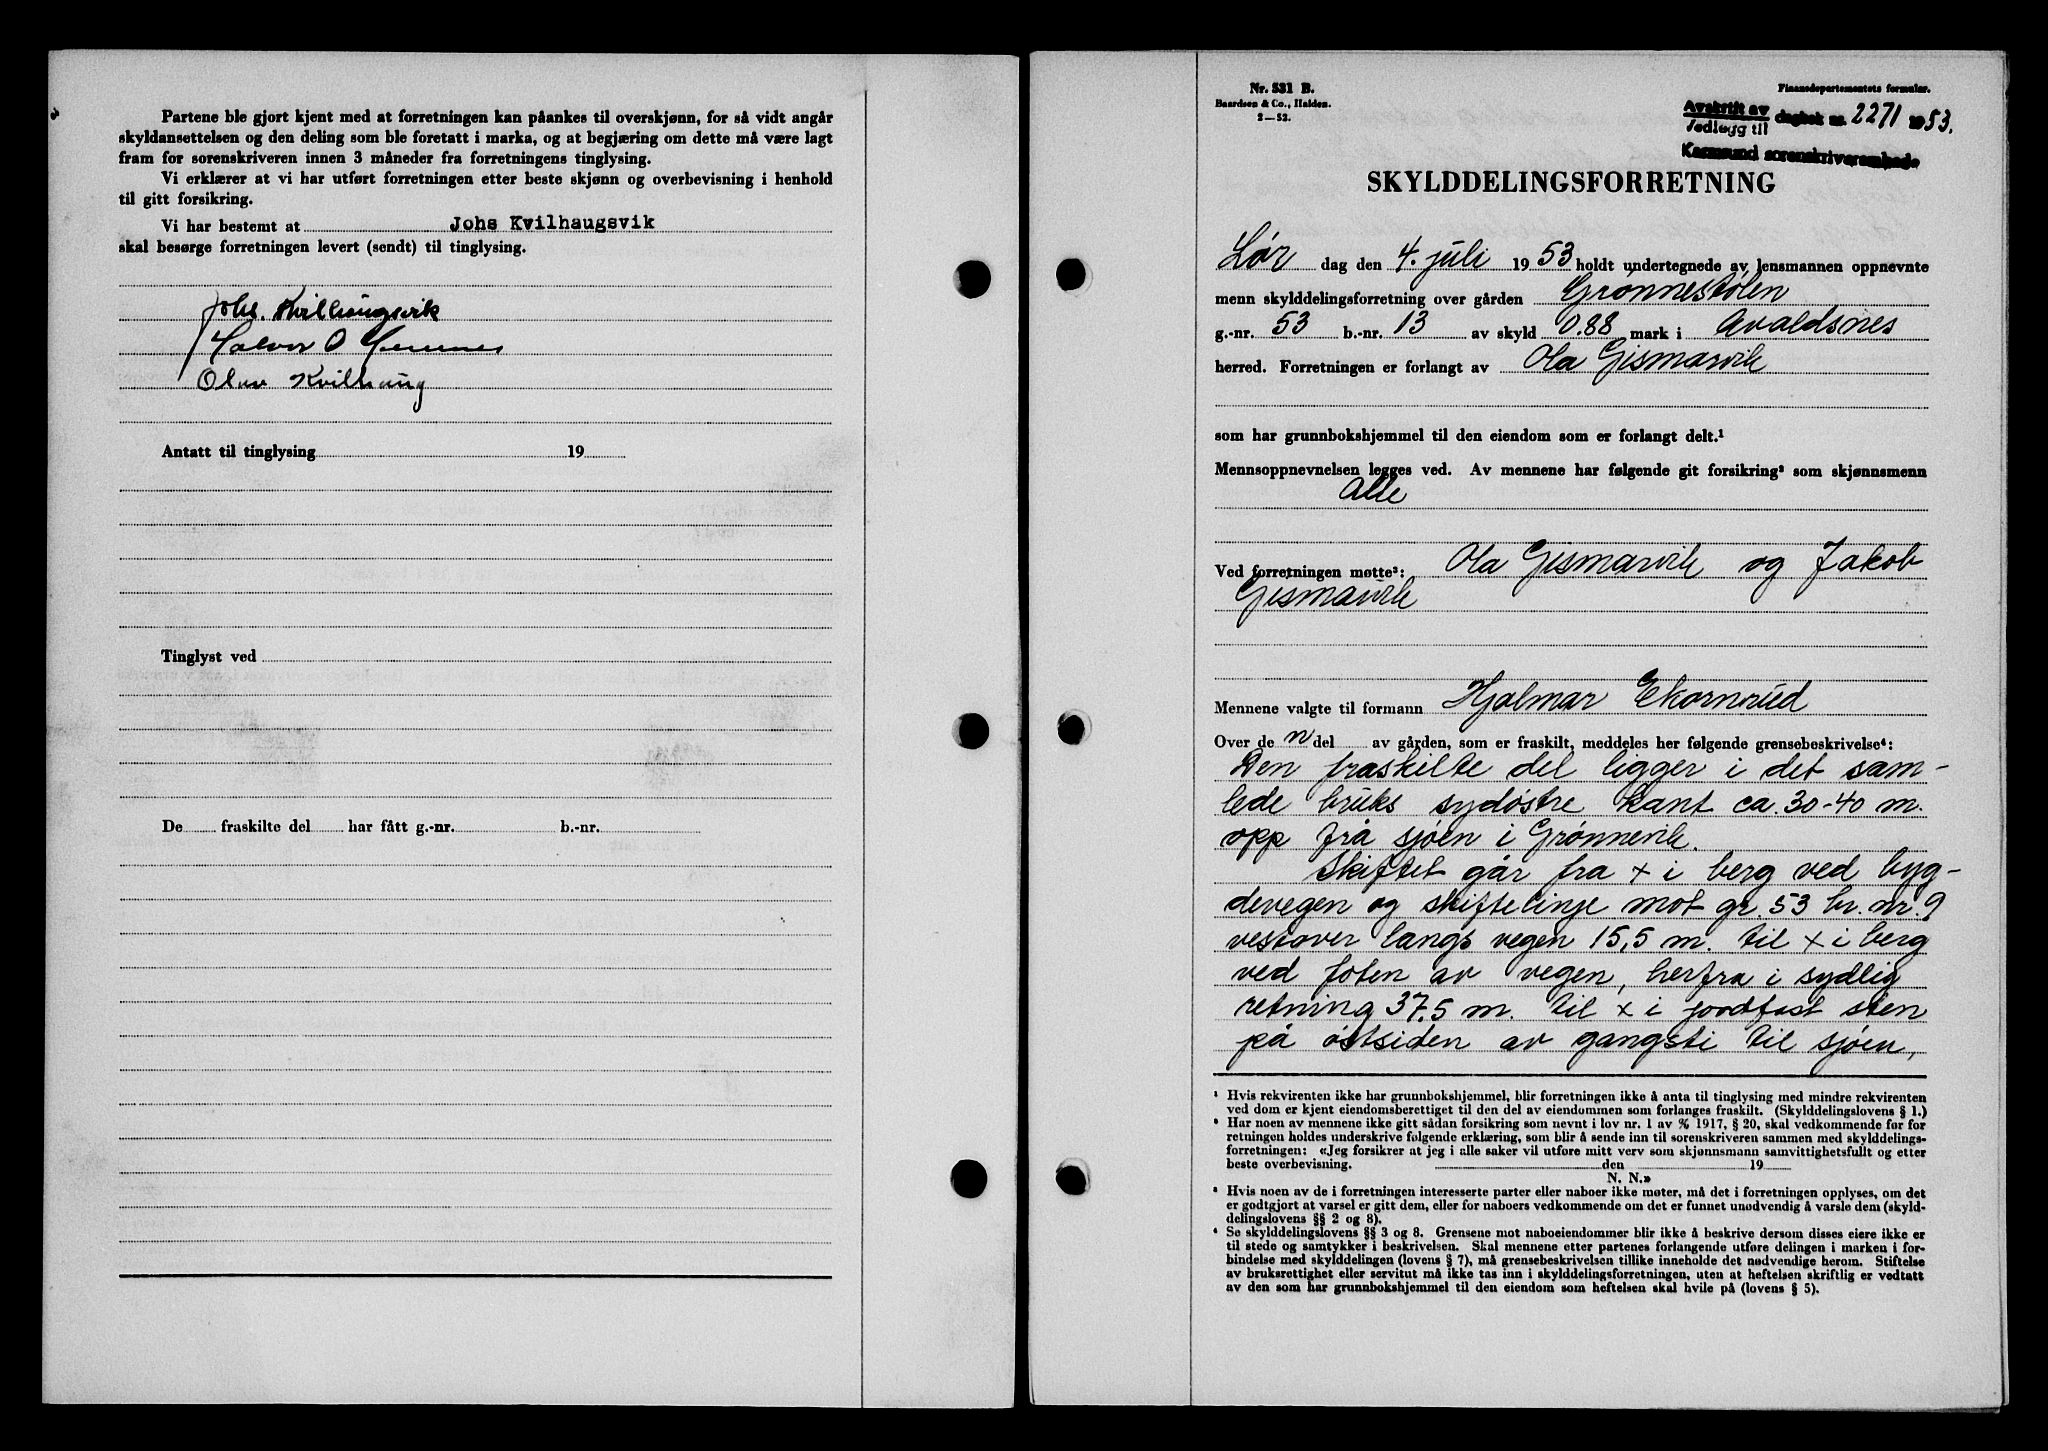 Partene ble gjort kjent med at forretningen kan påankes til overskjønn, for så vidt angår
skyldansettelsen og den deling som ble foretatt i marka, og at begjæring om dette må være lagt
fram for sorenskriveren innen 3 måneder fra forretningens tinglysing.
Vi erklærer at vi har utført forretningen etter beste skjønn og overbevisning i henhold
til gitt forsikring.
Vi har bestemt at Johs Kvilhaugsvik
skal besørge forretningen levert (sendt) til tinglysing.
Johs. Kvilhaugsvik
Halvor O
Olav Kvilhaug
Antatt til tinglysing 19
Tinglyst ved
De fraskilte del har fått g.-nr. b.-nr.
Nr. 531 B.
Baardsen & Co., Halden.
2—52.
Finansdepartementets formular.
Avskrift av
Vedlegg til dagbok nr. 2271 1953.
Karmsund sorenskriverembede
SKYLDDELINGSFORRETNING
Lør dag den 4. juli 1953 holdt undertegnede av lensmannen oppnevnte
menn skylddelingsforretning over gården Grønnestølen
g.-nr. 53 b.-nr. 13 av skyld 0.88 mark i Avaldsnes
herred. Forretningen er forlangt av Ola Gismarvik
som har grunnbokshjemmel til den eiendom som er forlangt delt.¹
Mennsoppnevnelsen legges ved. Av mennene har følgende git forsikring² som skjønnsmenn
Alle
Ved forretningen møtte³: Ola Gismarvik og Jakob
Gismarvik
Mennene valgte til formann Hjalmar Ekornrud
Over de n del av gården, som er fraskilt, meddeles her følgende grensebeskrivelse⁴:
Den fraskilte del ligger i det sam-
lede bruks sydøstre kant ca. 30-40 m.
opp frå sjøen i Grønnevik.
Skiftet går fra x i berg ved byg-
devegen og skiftelinje mot gr. 53 br. nr. 9
vestover langs vegen 15,5 m. til x i berg
ved foten av vegen, herfra i sydlig
retning 37,5 m. til x i jordfast sten
på østsiden av gangsti til sjøen,
¹ Hvis rekvirenten ikke har grunnbokshjemmel, blir forretningen ikke å anta til tinglysing med mindre rekvirenten
ved dom er kjent eiendomsberettiget til den del av eiendommen som forlanges fraskilt. (Skylddelingslovens § 1.)
² Har noen av mennene ikke gitt sådan forsikring som nevnt i lov nr. 1 av 1917, § 20, skal vedkommende før for
retningen holdes underskrive følgende erklæring, som blir å sende inn til sorenskriveren sammen med skylddelings-
forretningen: «Jeg forsikrer at jeg i alle saker vil utføre mitt verv som skjønnsmann samvittighetsfullt og etter
beste overbevisning. den 19
N. N.»
³ Hvis noen av de i forretningen interesserte parter eller naboer ikke møter, må det i forretningen opplyses, om det
er godtgjort at varsel er gitt dem, eller for naboers vedkommende om det er funnet unødvendig å varsle dem (skyld-
delingslovens §§ 2 og 8).
⁴ Se skylddelingslovens §§ 3 og 8. Grensene mot naboeiendommer blir ikke å beskrive dersom disses eiere ikke er
til stede og samtykker i beskrivelsen. Skal mennene etter partenes forlangende utføre delingen i marken i for-
bindelse med skylddelingen (lovens § 7), må grensebeskrivelsen tillike inneholde det nødvendige herom. Stiftelse
av bruksrettighet eller servitut må ikke tas inn i skylddelingsforretningen, uten at heftelsen skriftlig er vedtatt
av den som har grunnbokshjemmel til den eiendom som heftelsen skal hvile på (lovens § 5).